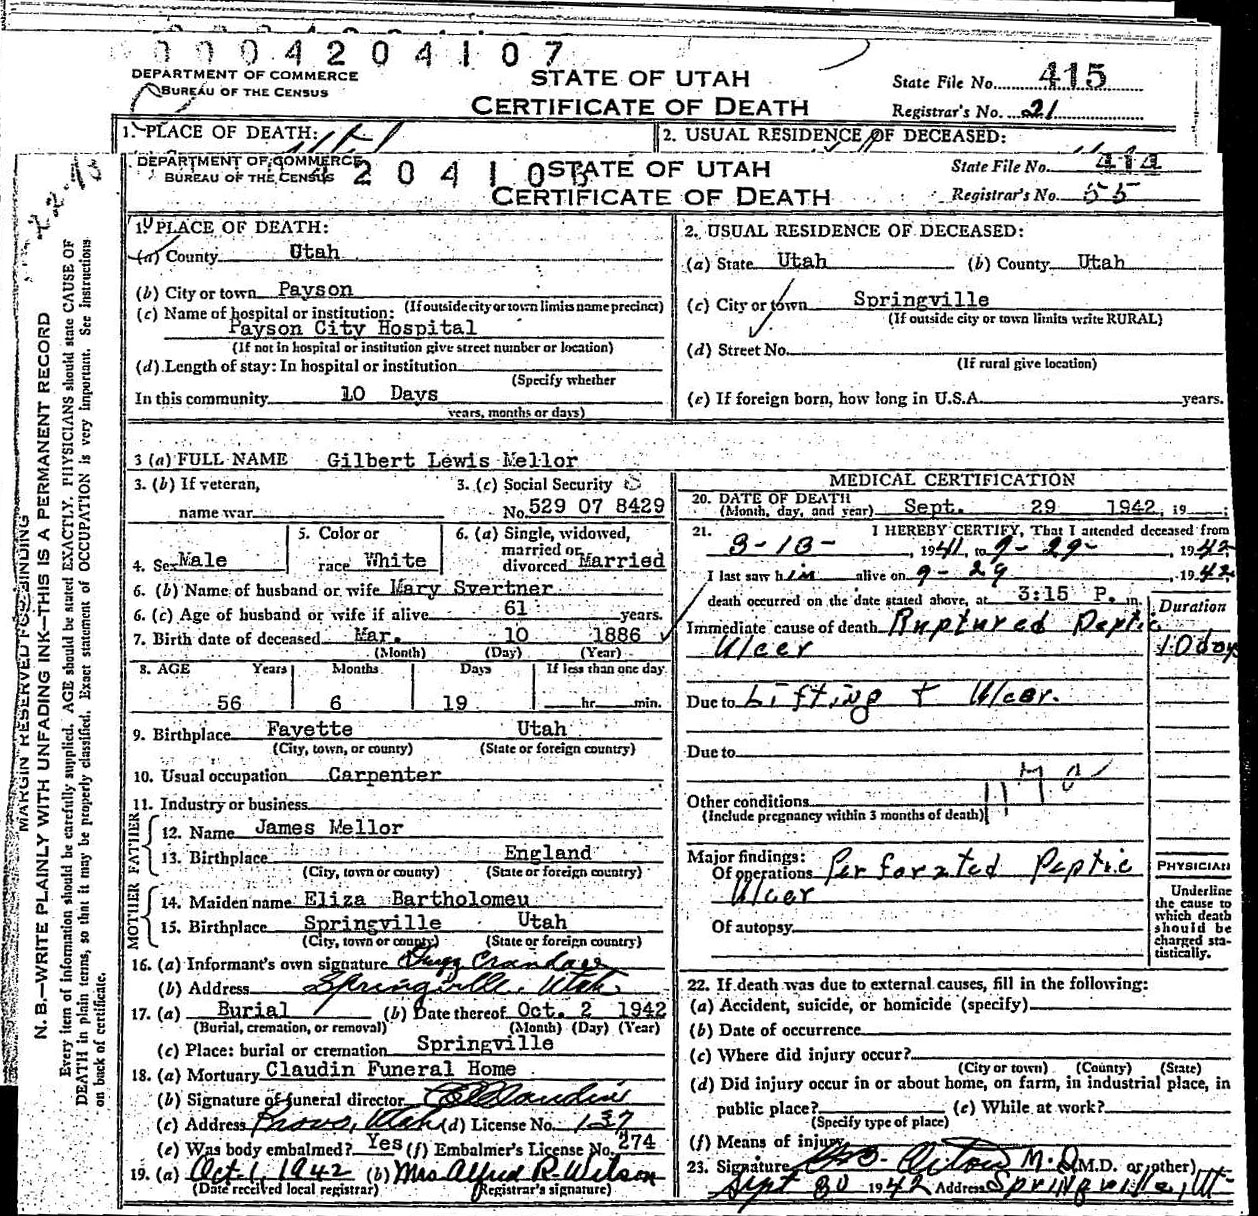 0004204107
DEPARTMENT OF COMMERCE
BUREAU OF THE CENSUS
STATE OF UTAH
CERTIFICATE OF DEATH
State File No. 415
Registrar's No. 21
1. PLACE OF DEATH:
2. USUAL RESIDENCE OF DECEASED:
DEPARTMENT OF COMMERCE
BUREAU OF THE CENSUS
STATE OF UTAH
CERTIFICATE OF DEATH
State File No. 414
Registrar's No. 55
MARGIN RESERVED FOR BINDING
N. B.—WRITE PLAINLY WITH UNFADING INK—THIS IS A PERMANENT RECORD
Every item of information should be carefully supplied. AGE should be stated EXACTLY. PHYSICIANS should state CAUSE OF
DEATH in plain terms, so that it may be properly classified. Exact statement of OCCUPATION is very important. See instructions
on back of certificate.
1. PLACE OF DEATH:
(a) County Utah
(b) City or town Payson
(If outside city or town limits name precinct)
(c) Name of hospital or institution:
Payson City Hospital
(If not in hospital or institution give street number or location)
(d) Length of stay: In hospital or institution
(Specify whether
In this community 10 Days
years, months or days)
2. USUAL RESIDENCE OF DECEASED:
(a) State Utah (b) County Utah
(c) City or town Springville
(If outside city or town limits write RURAL)
(d) Street No.
(If rural give location)
(e) If foreign born, how long in U.S.A. years.
3 (a) FULL NAME Gilbert Lewis Mellor
3. (b) If veteran,
name war
3. (c) Social Security
No. 529 07 8429
4. Sex Male
5. Color or
race White
6. (a) Single, widowed,
married or
divorced Married
6. (b) Name of husband or wife Mary Svertner
6. (c) Age of husband or wife if alive 61 years.
7. Birth date of deceased Mar. 10 1886
(Month) (Day) (Year)
8. AGE Years Months Days If less than one day
56 6 19 hr. min.
9. Birthplace Fayette Utah
(City, town, or county) (State or foreign country)
10. Usual occupation Carpenter
11. Industry or business
FATHER
12. Name James Mellor
13. Birthplace England
(City, town or county) (State or foreign country)
MOTHER
14. Maiden name Eliza Bartholomeu
15. Birthplace Springville Utah
(City, town or county) (State or foreign country)
16. (a) Informant's own signature Crandall
(b) Address Springville, Utah
17. (a) Burial (b) Date thereof Oct. 2 1942
(Burial, cremation, or removal) (Month) (Day) (Year)
(c) Place: burial or cremation Springville
18. (a) Mortuary Claudin Funeral Home
(b) Signature of funeral director Claudin
(c) Address Provo, Utah (d) License No. 137
(e) Was body embalmed? Yes (f) Embalmer's License No. 274
19. (a) Oct 1, 1942 (b) Mrs Alfred R. Wilson
(Date received local registrar) (Registrar's signature)
MEDICAL CERTIFICATION
20. DATE OF DEATH
(Month, day, and year) Sept. 29 1942, 19
21. I HEREBY CERTIFY, That I attended deceased from
3-13-, 1941, to 9-29-, 1942
I last saw him alive on 9-29, 1942
death occurred on the date stated above, at 3:15 P. m.
Duration
Immediate cause of death Ruptured Peptic
Ulcer 10 days
Due to Lifting + Ulcer.
Due to
Other conditions
(Include pregnancy within 3 months of death)
Major findings:
Of operations Perforated Peptic
Ulcer
Of autopsy
PHYSICIAN
Underline
the cause to
which death
should be
charged sta-
tistically.
22. If death was due to external causes, fill in the following:
(a) Accident, suicide, or homicide (specify)
(b) Date of occurrence
(c) Where did injury occur?
(City or town) (County) (State)
(d) Did injury occur in or about home, on farm, in industrial place, in
public place? (e) While at work?
(Specify type of place)
(f) Means of injury
23. Signature M.D. (M.D. or other)
Sept 30 1942 Address Springville, Ut